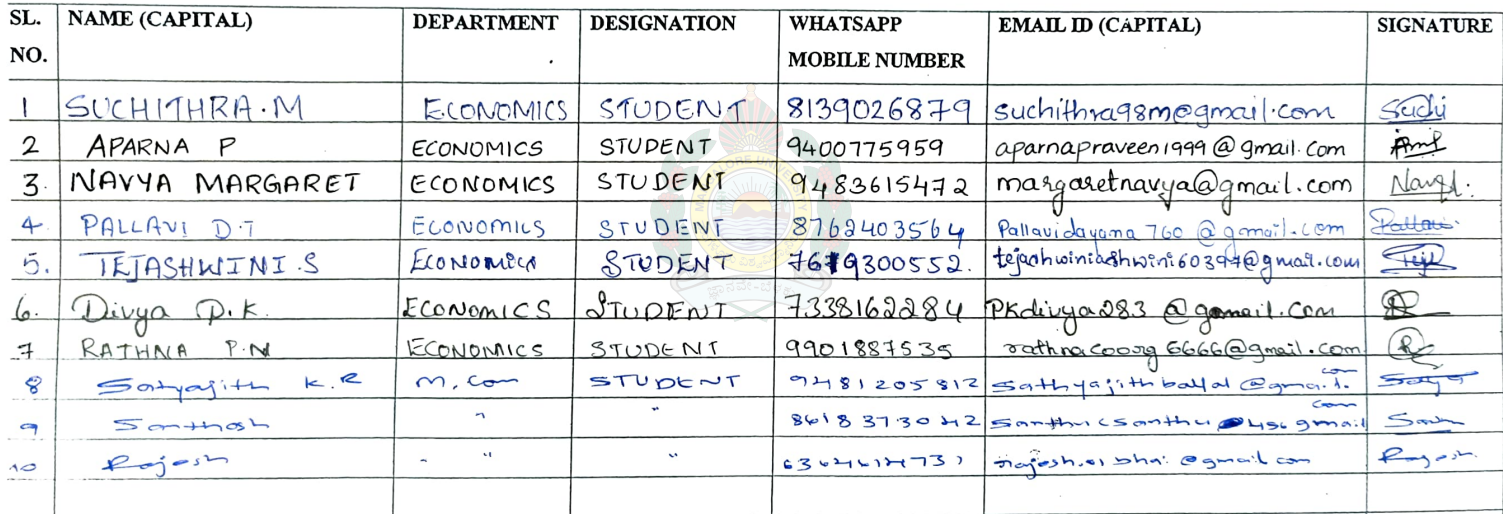 SL. NO. NAME (CAPITAL) DEPARTMENT DESIGNATION WHATSAPP MOBILE NUMBER EMAIL ID (CAPITAL) SIGNATURE
1 SUCHITHRA.M ECONOMICS STUDENT 8139026879 suchithra98m@gmail.com Suchi
2 APARNA P ECONOMICS STUDENT 9400775959 aparnapraveen1999@gmail.com
3. NAVYA MARGARET ECONOMICS STUDENT 9483615472 margaretnavya@gmail.com
4. PALLAVI D.T ECONOMICS STUDENT 8762403564 Pallavidayana760@gmail.com Pallavi
5. TEJASHWINI.S ECONOMICS STUDENT 7619300552. tejashwiniashwini60397@gmail.com
6. Divya P.K. ECONOMICS STUDENT 7338162284 PKdivya283@gmail.com
7 RATHNA P.N ECONOMICS STUDENT 9901887535 rathnacoorg6666@gmail.com
8 Satyajith K.R M.Com STUDENT 9481205812 Sathyajithballal@gmail.com
9 Santhosh " " 8618373042
10 Rajesh " " Rajesh